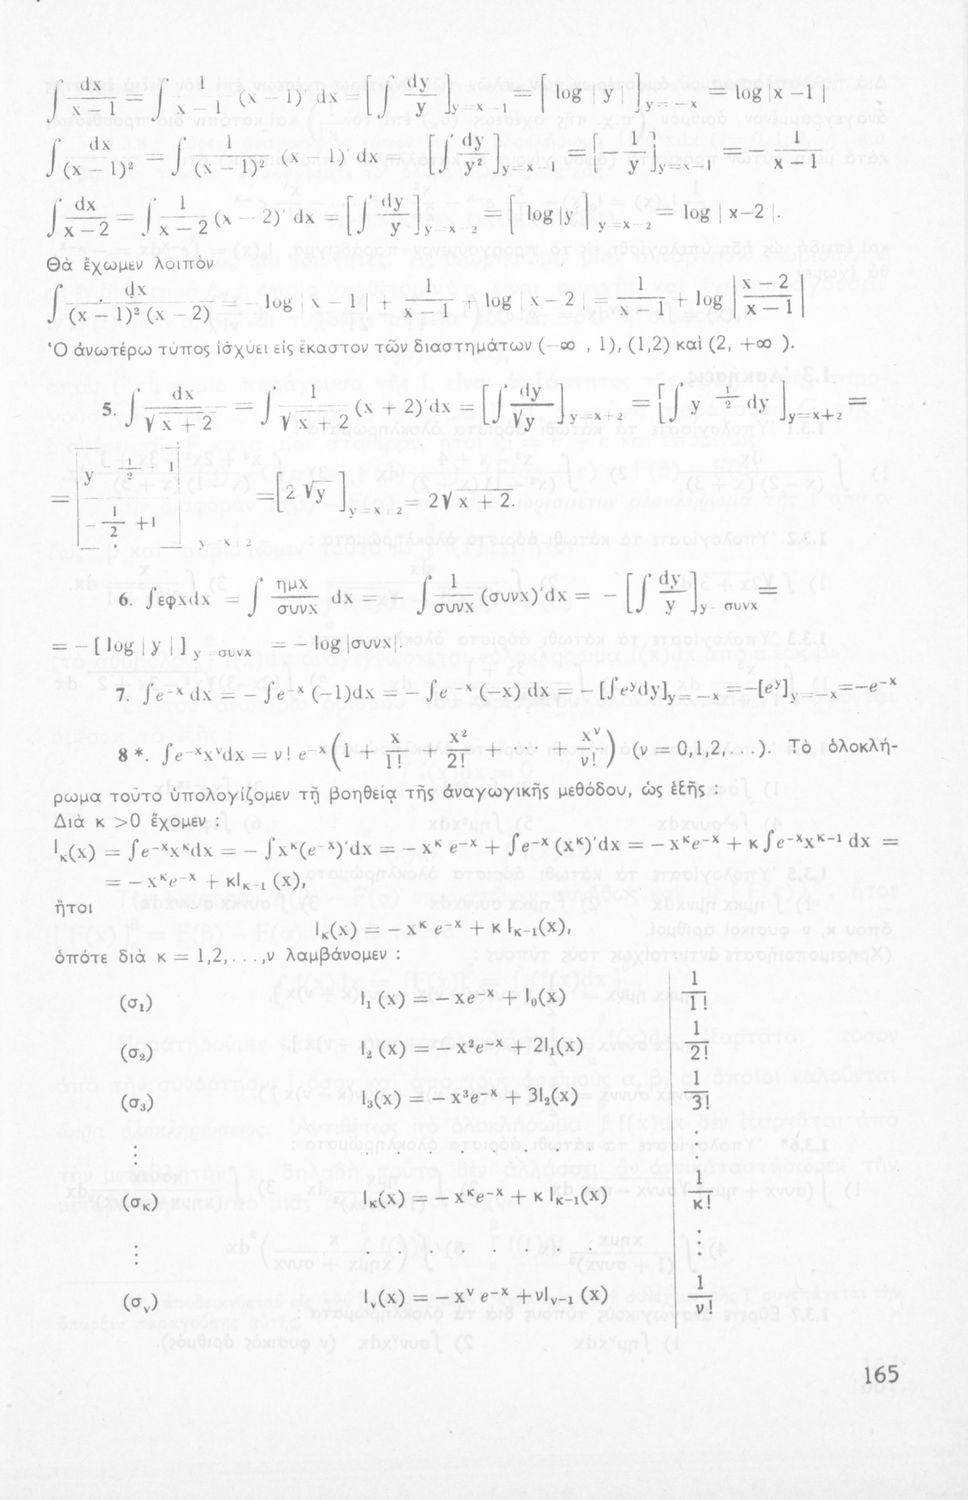 ∫ dx/(x − 1) = ∫ 1/(x − 1) (x − 1)′ dx = [∫ dy/y]y=x−1 = [log |y|]y=−x = log |x − 1|
∫ dx/(x − 1)² = ∫ 1/(x − 1)² (x − 1)′ dx = [∫ dy/y²]y=x−1 = [− 1/y]y=x−1 = − 1/(x − 1)
∫ dx/(x − 2) = ∫ 1/(x − 2) (x − 2)′ dx = [∫ dy/y]y=x−2 = [log |y|]y=x−2 = log |x−2|.
Θὰ ἔχωμεν λοιπὸν
∫ dx/((x − 1)² (x − 2)) = − log |x − 1| + 1/(x − 1) + log |x − 2| = 1/(x − 1) + log |(x − 2)/(x − 1)|
Ὁ ἀνωτέρω τύπος ἰσχύει εἰς ἕκαστον τῶν διαστημάτων (−∞ , 1), (1,2) καὶ (2, +∞ ).
5. ∫ dx/√(x + 2) = ∫ 1/√(x + 2) (x + 2)′dx = [∫ dy/√y]y=x+2 = [∫ y^(−1/2) dy]y=x+2 =
= [y^(−1/2 + 1)/(−1/2 +1)]y=x+2 = [2 √y]y=x+2 = 2√(x + 2).
6. ∫εφxdx = ∫ ημx/συνx dx = − ∫ 1/συνx (συνx)′dx = − [∫ dy/y]y=συνx =
= − [ log | y | ] y=συνx = − log |συνx|.
7. ∫e⁻ˣ dx = − ∫e⁻ˣ (−1)dx = − ∫e⁻ˣ (−x) dx = − [∫eʸdy]y=−x = −[eʸ]y=−x = −e⁻ˣ
8 *. ∫e⁻ˣxᵛdx = ν! e⁻ˣ (1 + x/1! + x²/2! + ··· + xᵛ/ν!) (ν = 0,1,2,...). Τὸ ὁλοκλή-
ρωμα τοῦτο ὑπολογίζομεν τῇ βοηθείᾳ τῆς ἀναγωγικῆς μεθόδου, ὡς ἑξῆς :
Διὰ κ >0 ἔχομεν :
Iκ(x) = ∫e⁻ˣx^κdx = − ∫x^κ(e⁻ˣ)′dx = − x^κ e⁻ˣ + ∫e⁻ˣ (x^κ)′dx = − x^κe⁻ˣ + κ∫e⁻ˣx^(κ−1) dx =
= − x^κe⁻ˣ + κIκ−1 (x),
ἤτοι
Iκ(x) = − x^κ e⁻ˣ + κ Iκ−1(x),
ὁπότε διὰ κ = 1,2,. . .,ν λαμβάνομεν :
(σ₁) I₁ (x) = − xe⁻ˣ + I₀(x) 1/1!
(σ₂) I₂ (x) = − x²e⁻ˣ + 2I₁(x) 1/2!
(σ₃) I₃(x) = − x³e⁻ˣ + 3I₂(x) 1/3!
⋮ . . . . . . . . ⋮
(σκ) Iκ(x) = − x^κe⁻ˣ + κ Iκ−1(x) 1/κ!
⋮ . . . . . . . . ⋮
(σν) Iν(x) = − xᵛ e⁻ˣ +νIν−1 (x) 1/ν!
165